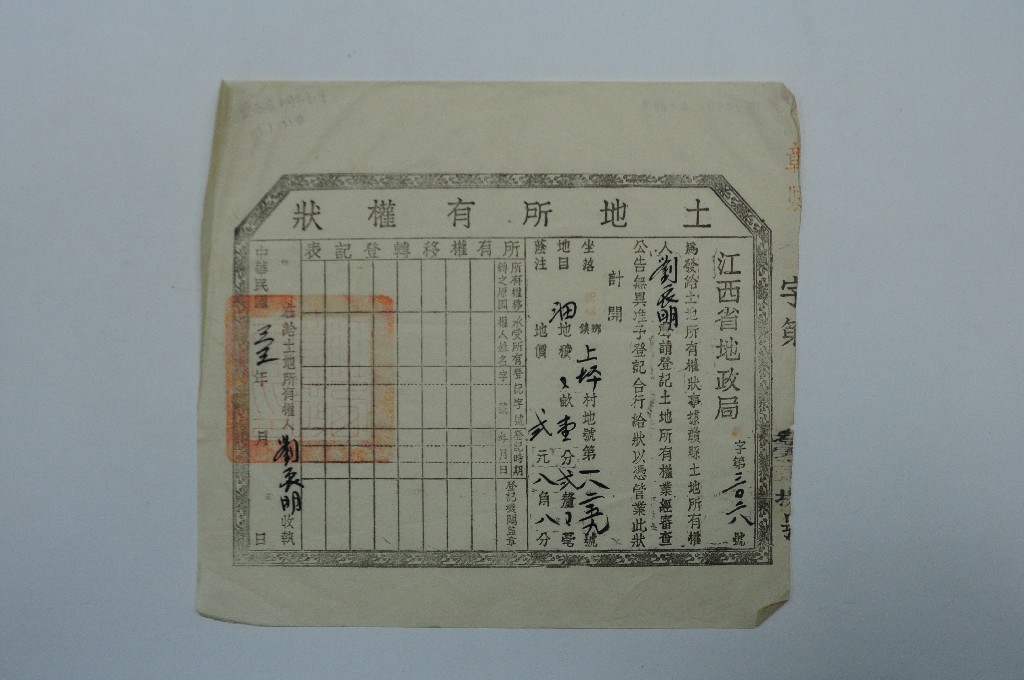 土地所有權狀
江西省地政局
字第三〇二六號
為發給土地所有權狀事據贛縣土地所有權
人劉辰明聲請登記土地所有權業經審查
公告無異准予登記合行給狀以憑管業此狀
計開
坐落 鄉鎮上坪村地號第一八二五九號
地目 地積 畝壹分弍釐 毫
備注 地價 弍元八角八分
所有權移轉登記表
所有權移轉之原因
承受所有權人姓名
登記字號
登記時期
年月日
登記機關蓋章
右給土地所有權人劉辰明收執
中華民國 年 月 日
字第